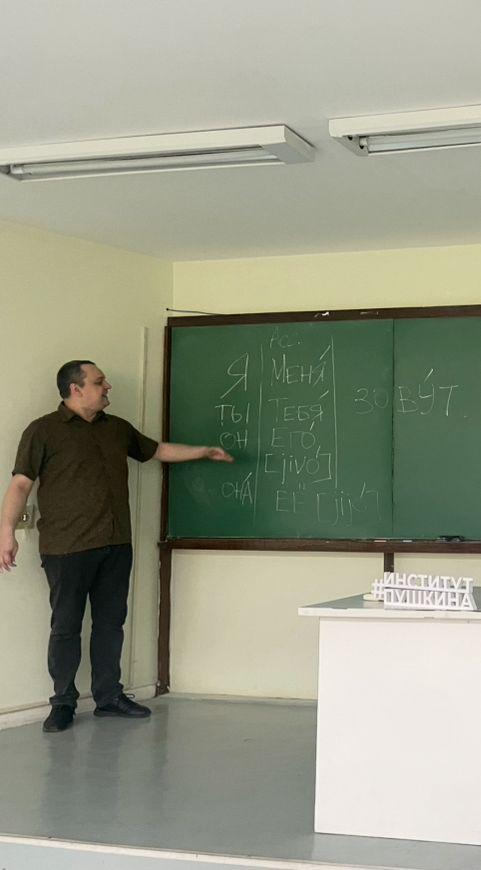 Ac.
Я МЕНЯ́
ТЫ ТЕБЯ́ ЗОВУ́Т.
ОН ЕГО́
[jivó]
ОНА́ ЕЁ [jijó]
#ИНСТИТУТ
#ПУШКИНА